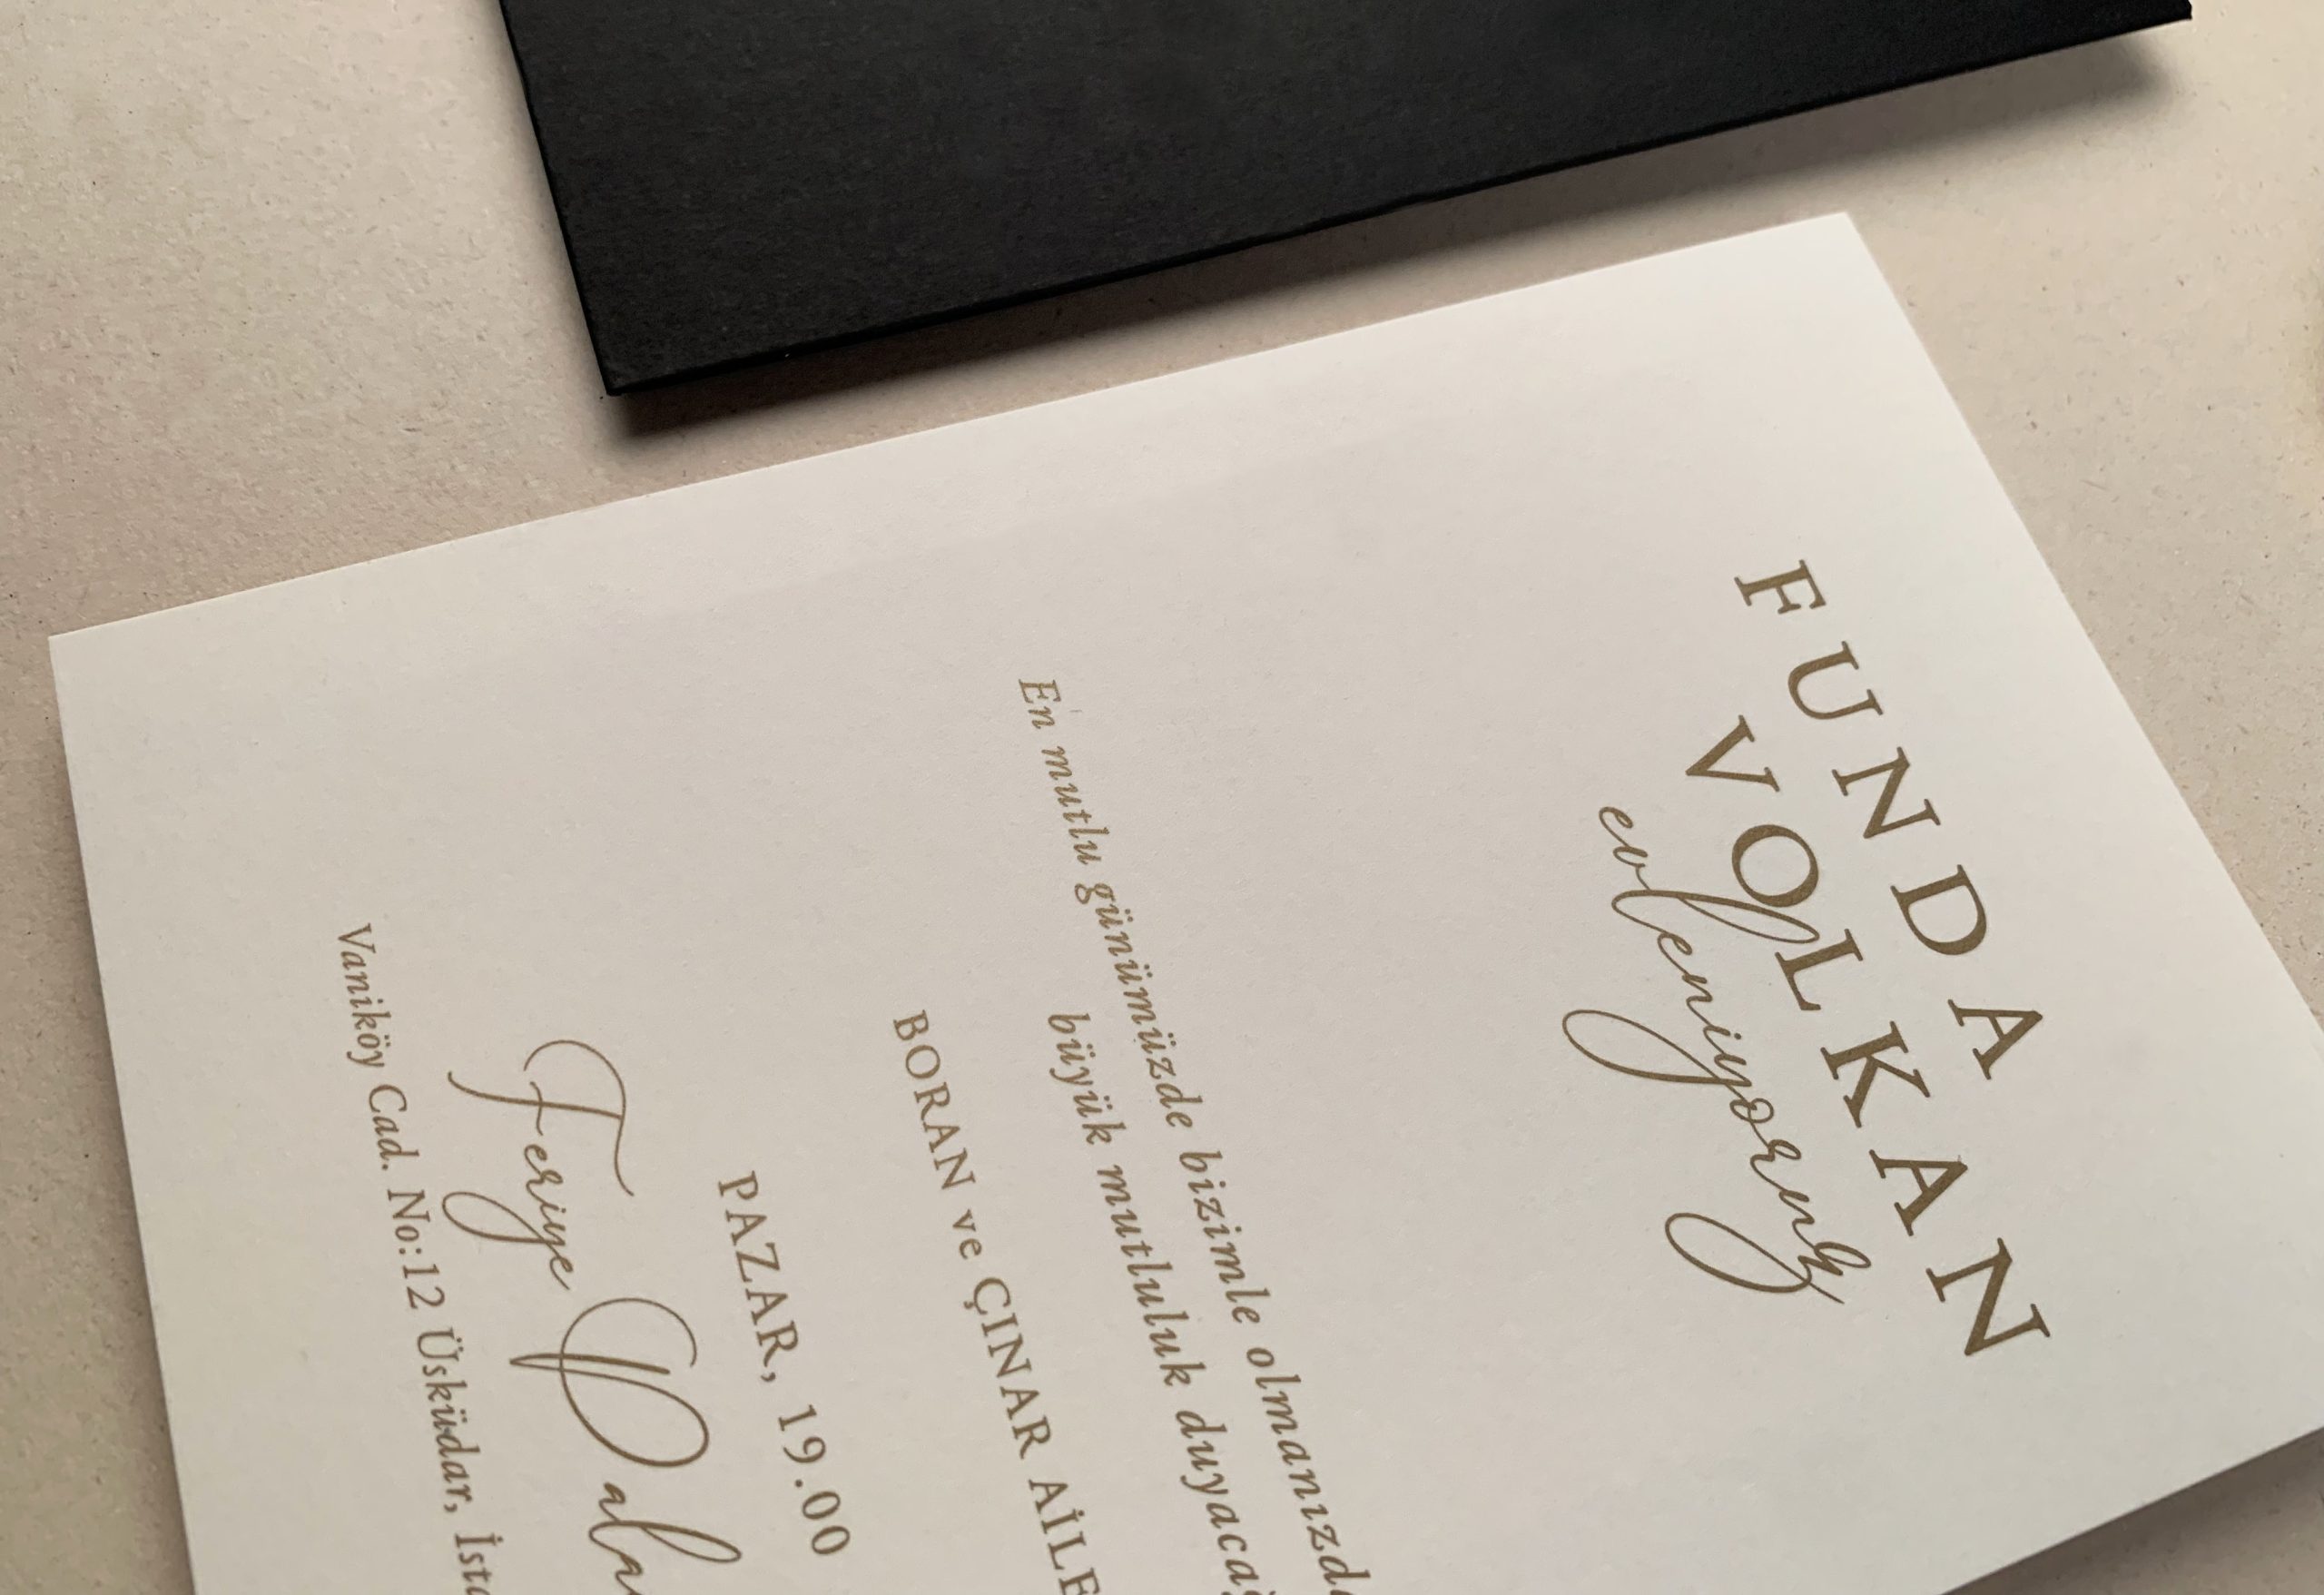 FUNDA
VOLKAN
evleniyoruz
En mutlu günümüzde bizimle olmanızda
büyük mutluluk duyaca
BORAN ve ÇINAR AİLE
PAZAR, 19.00
Feriye
Vaniköy Cad. No:12 Üsküdar, İst